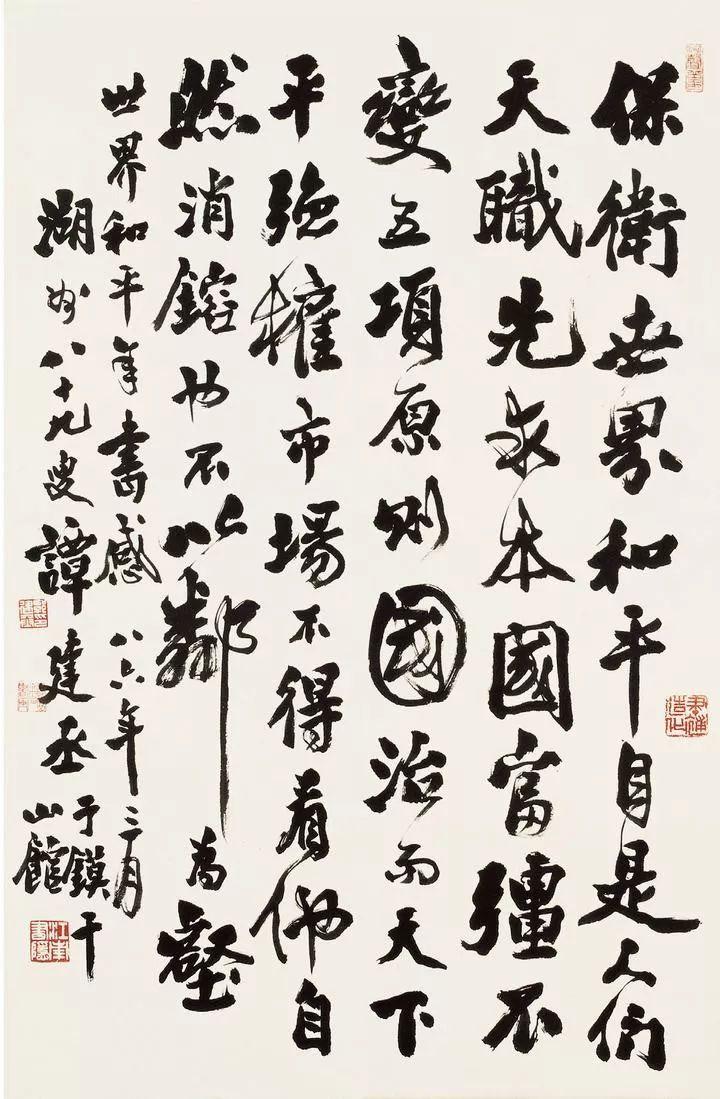 保衛世界和平自是人們
天職先求本國富彊不
變五項原則國治而天下
平強權市場不得看他自
然消鎔也不以鄰為壑
世界和平年書感 八六年三月
湖州八十九叟譚建丞 于鏌干
山館